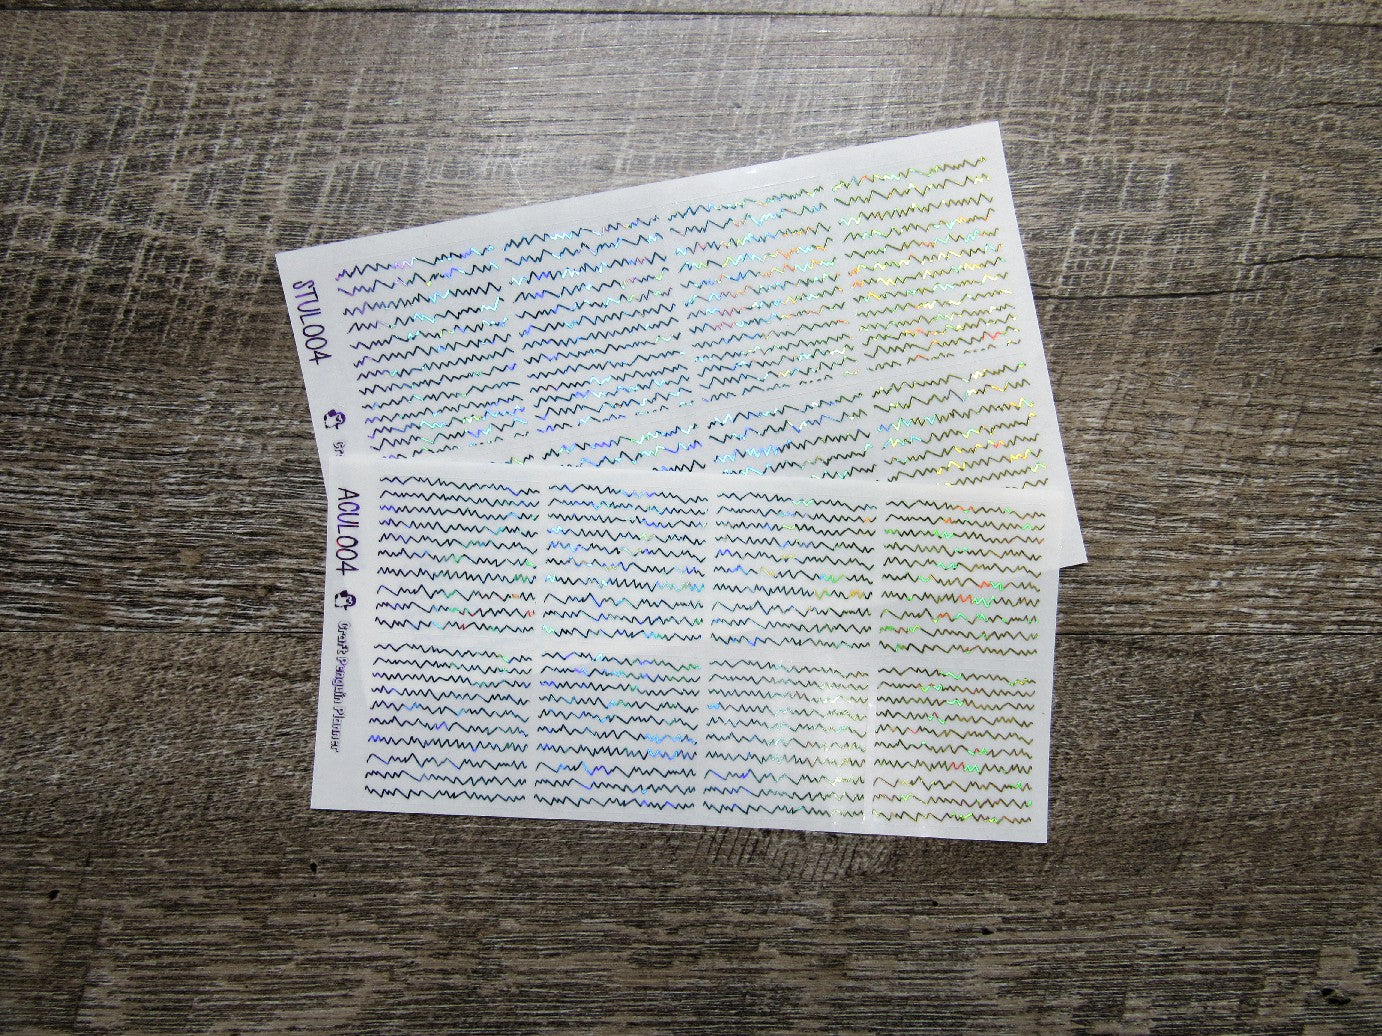 STUL004
ACUL004
Craft Penguin Planner